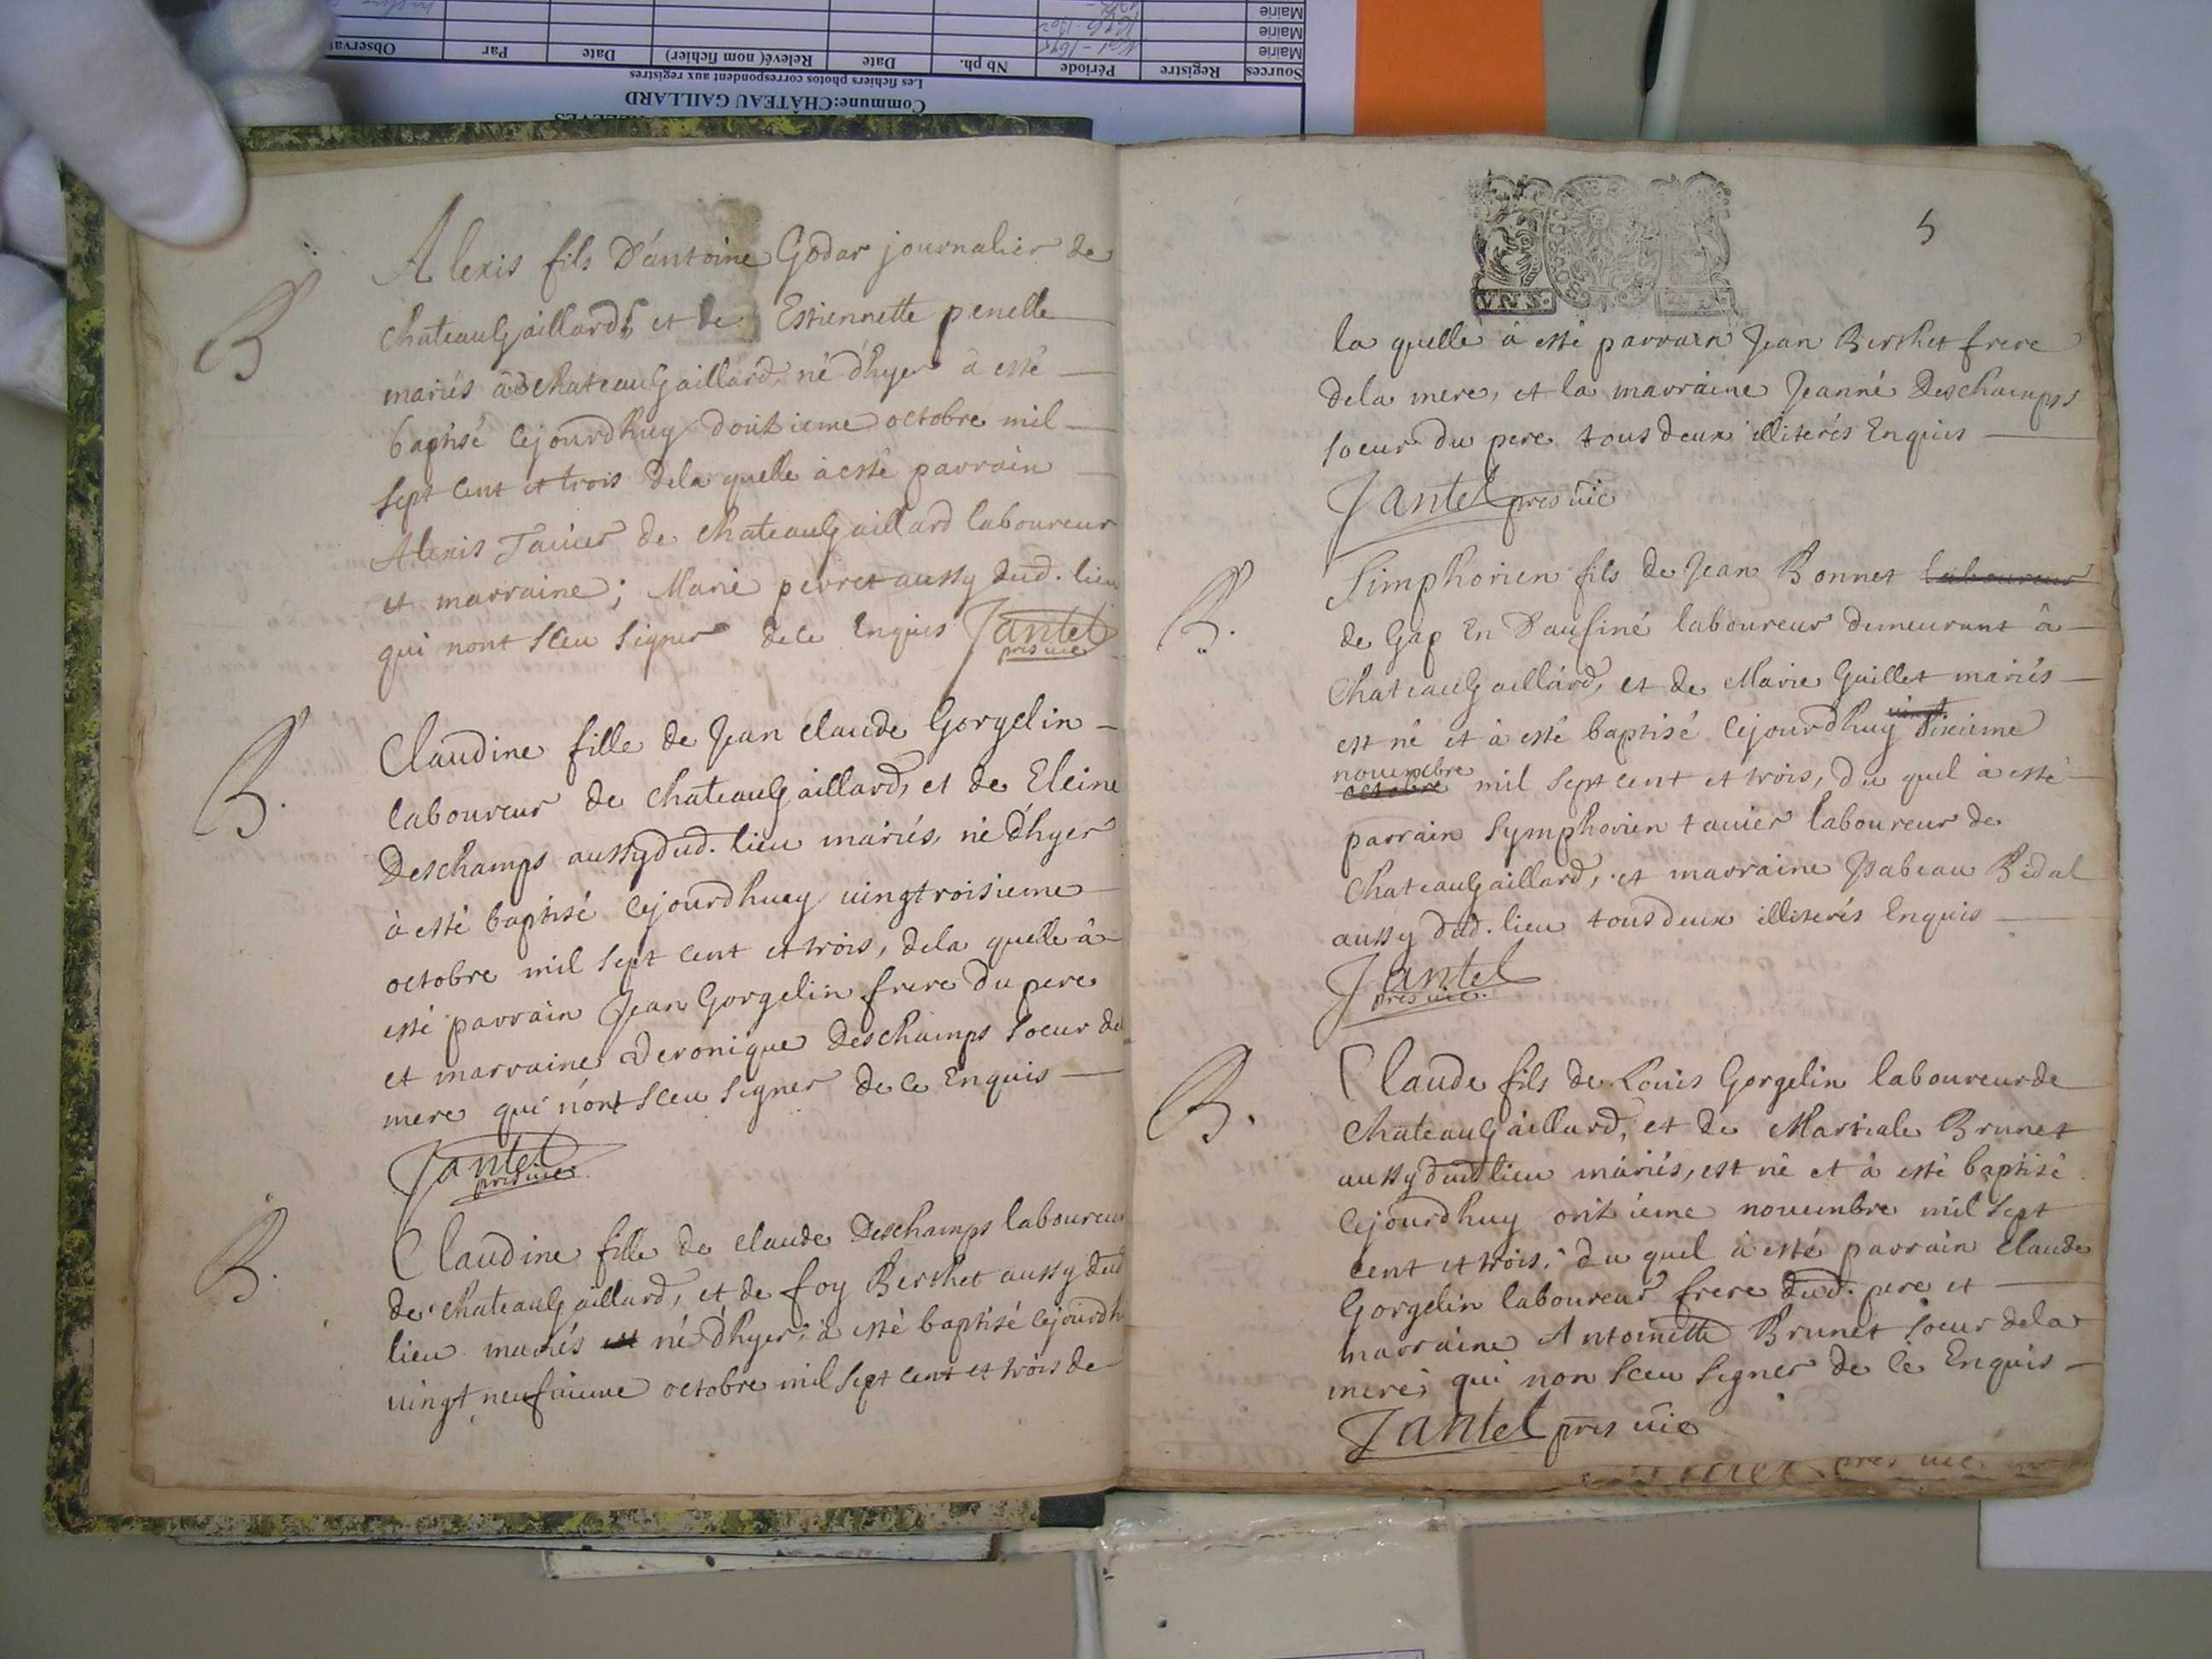 Commune:CHÂTEAU GAILLARD
Les fichiers photos correspondent aux registres
Sources Registre Période Nb ph. Date Relevé( nom fichier) Date Par Observat
Mairie
Mairie
Mairie
B
Alexis fils D'antoine Godar journalier de
chateaugaillard, et de Estiennette penelle
mariés a chateaugaillard, né d'hyer à esté
baptisé cejourdhuy douzieme octobre mil
sept cent et trois dela quelle à esté parrain
Alexis Tavier de chateaugaillard laboureur
et marraine; Marie perret aussy dud. lieu
qui nont sceu signer dece Enquis Jantet
pres vic
B.
Claudine fille de Jean claude Gorgelin
laboureur de chateaugaillard, et de Eleine
Deschamps aussy dud. lieu mariés, né d'hyer
à esté baptisé cejourdhuy vingtroisieme
octobre mil sept cent et trois, dela quelle à
esté parrain Jean Gorgelin frere du pere
et marraine Veronique Deschamps soeur de
mere qui n'ont sceu signer de ce Enquis
Jantet
pres vic
B.
Claudine fille de claude Deschamps laboureur
de chateaugaillard, et de foy Berthet aussy dud
lieu mariés et né d'hyer à esté baptisé cejourdh
vingt neufvieme octobre mil sept cent et trois de
5
la quelle à esté parrain Jean Berthet frere
dela mere, et la marraine Jeanne Deschamps
soeur du pere tous deux illiterés Enquis
Jantet pres vic
B.
Simphorien fils de Jean Bonnet laboureur
de Gap En Daufiné laboureur demeurant à
Chateaugaillard, et de Marie Guillet mariés
est né et à esté baptisé cejourdhuy dixieme
novembre
octobre mil sept cent et trois, du quel à esté
parrain Symphorien tavier laboureur de
Chateaugaillard, et marraine Isabeau Bidal
aussy dud. lieu tous deux illiterés Enquis
Jantet
pres vic.
B.
Claude fils de Louis Gorgelin laboureur de
Chateaugaillard, et de Martiale Brunet
aussy dud lieu mariés, est né et à esté baptisé
cejourdhuy onzieme novembre mil sept
cent et trois, du quel à esté parrain claude
Gorgelin laboureur frere dud. pere et
marraine Antoinette Brunet soeur dela
mere; qui non sceu signer de ce Enquis
Jantet pres vic
pres vic